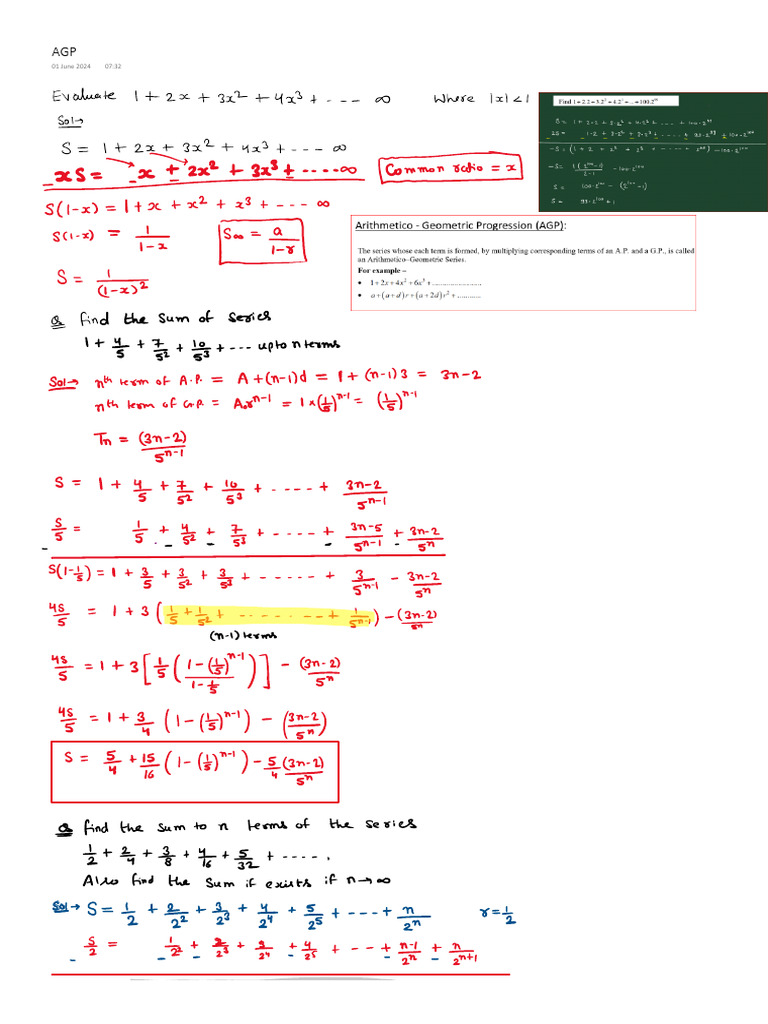 AGP
01 June 2024 07:32
Evaluate 1 + 2x + 3x² + 4x³ + ---- ∞ where |x| < 1
Sol→
S = 1 + 2x + 3x² + 4x³ + ---- ∞
_xS = _x + 2x² + 3x³ + ----∞
Common ratio = x
S(1-x) = 1 + x + x² + x³ + ---- ∞
S(1-x) = 1/(1-x)
S∞ = a/(1-r)
S = 1/(1-x)²
Find 1 + 2.2 + 3.2² + 4.2³ + ... + 100.2⁹⁹
S = 1 + 2·2 + 3·2² + 4·2³ + ---- + 100·2⁹⁹
2S = 1·2 + 2·2² + 3·2³ + ---- + 99·2⁹⁹ + 100·2¹⁰⁰
-S = (1 + 2 + 2² + 2³ + ---- + 2⁹⁹) - 100·2¹⁰⁰
-S = 1(2¹⁰⁰-1)/(2-1) - 100·2¹⁰⁰
S = 100·2¹⁰⁰ - (2¹⁰⁰-1)
S = 99·2¹⁰⁰ + 1
Arithmetico - Geometric Progression (AGP):
The series whose each term is formed, by multiplying corresponding terms of an A.P. and a G.P., is called
an Arithmetico–Geometric Series.
For example –
• 1 + 2x + 4x² + 6x³ + ........................
• a + (a + d)r + (a + 2d)r² + ............
Q find the sum of series
1 + 4/5 + 7/5² + 10/5³ + --- upto n terms
Sol→ nth term of A.P. = A + (n-1)d = 1 + (n-1)3 = 3n-2
nth term of G.P. = A.rⁿ⁻¹ = 1 × (1/5)ⁿ⁻¹ = (1/5)ⁿ⁻¹
Tn = (3n-2)/5ⁿ⁻¹
S = 1 + 4/5 + 7/5² + 10/5³ + ----- + (3n-2)/5ⁿ⁻¹
S/5 = 1/5 + 4/5² + 7/5³ + ----- + (3n-5)/5ⁿ⁻¹ + (3n-2)/5ⁿ
S(1-1/5) = 1 + 3/5 + 3/5² + 3/5³ + ------ + 3/5ⁿ⁻¹ - (3n-2)/5ⁿ
4S/5 = 1 + 3(1/5 + 1/5² + -------- + 1/5ⁿ⁻¹) - (3n-2)/5ⁿ
(n-1) terms
4S/5 = 1 + 3[1/5((1-(1/5)ⁿ⁻¹)/(1-1/5))] - (3n-2)/5ⁿ
4S/5 = 1 + 3/4 (1-(1/5)ⁿ⁻¹) - ((3n-2)/5ⁿ)
S = 5/4 + 15/16 (1-(1/5)ⁿ⁻¹) - 5/4 (3n-2)/5ⁿ
Q find the sum to n terms of the series
1/2 + 2/4 + 3/8 + 4/16 + 5/32 + -----.
Also find the sum if exists if n→∞
Sol→ S = 1/2 + 2/2² + 3/2³ + 4/2⁴ + 5/2⁵ + ---+ n/2ⁿ r = 1/2
S/2 = 1/2² + 2/2³ + 3/2⁴ + 4/2⁵ + --- + (n-1)/2ⁿ + n/2ⁿ⁺¹